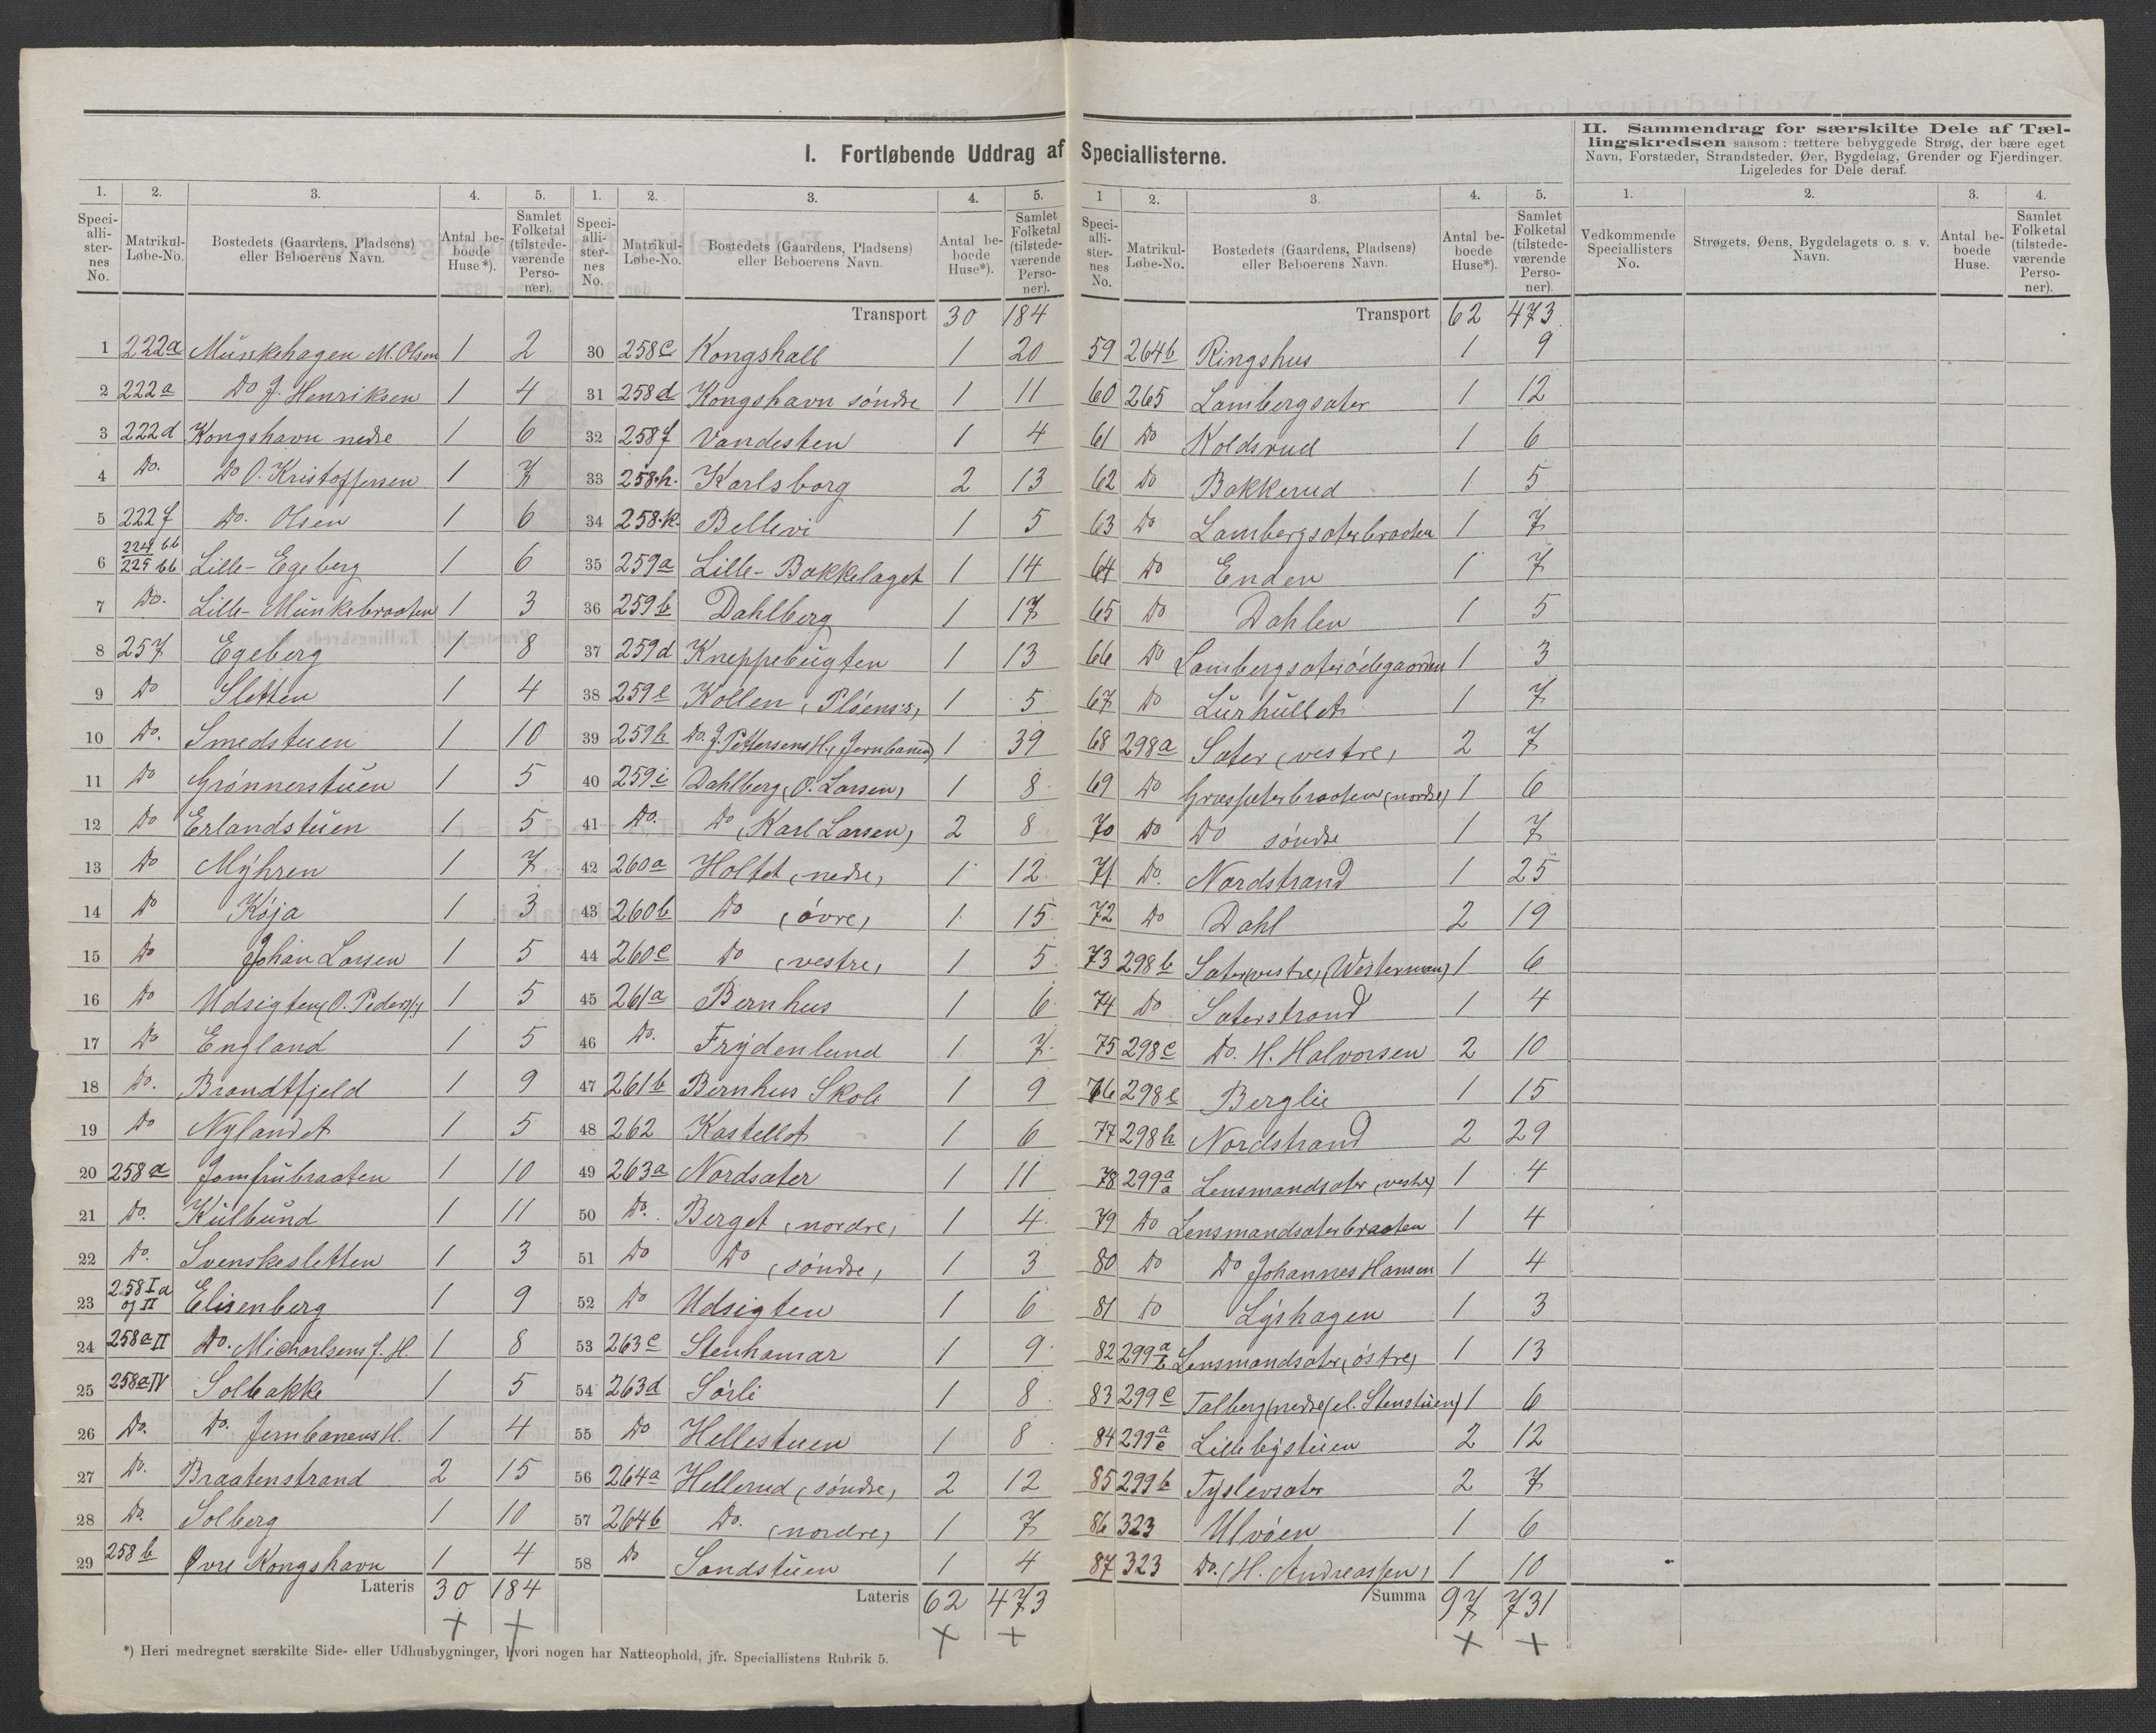 I. Fortløbende Uddrag af Speciallisterne.
II. Sammendrag for særskilte Dele af Tællingskredsen saasom: tættere bebyggede Strøg, der bære eget Navn, Forstæder, Strandsteder, Øer, Bygdelag, Grender og Fjerdinger. Ligeledes for Dele deraf.
1. 2. 3. 4. 5.
Speciallisternes No. Matrikul-Løbe-No. Bostedets (Gaardens, Pladsens) eller Beboerens Navn. Antal beboede Huse*). Samlet Folketal (tilstedeværende Personer).
1 222a Munkehagen M. Olsen 1 2
2 222a Do J. Henriksen 1 4
3 222d Kongshavn nedre 1 6
4 Do. Do O. Kristoffersen 1 7
5 222f Do. Olsen 1 6
6 224 bb 225 bb Lille-Egeberg 1 6
7 Do. Lille-Munkebraaten 1 3
8 257 Egeberg 1 8
9 Do Sletten 1 4
10 Do. Smedstuen 1 10
11 Do Grønnerstuen 1 5
12 Do Erlandstuen 1 5
13 Do Myhren 1 7
14 Do Køja 1 3
15 Do Johan Larsen 1 5
16 Do Udsigten (O. Peders.) 1 5
17 Do England 1 5
18 Do. Brandtfjeld 1 9
19 Do Nylandet 1 5
20 258a Jomfrubraaten 1 10
21 Do. Kulbund 1 11
22 Do. Svenskesletten 1 3
23 258 I a og II Elisenberg 1 9
24 258a II Do. Michaelsens f. H. 1 8
25 258a IV Solbakke 1 5
26 Do. Do. Jernbanens H. 1 4
27 Do. Braatenstrand 2 15
28 Do. Solberg 1 10
29 258b Øvre Kongshavn 1 4
Lateris 30 184
1. 2. 3. 4. 5.
Speciallisternes No. Matrikul-Løbe-No. Bostedets (Gaardens, Pladsens) eller Beboerens Navn. Antal beboede Huse*). Samlet Folketal (tilstedeværende Personer).
Transport 30 184
30 258c Kongshall 1 20
31 258d Kongshavn søndre 1 11
32 258f Vandesten 1 4
33 258.h. Karlsborg 2 13
34 258.k. Bellevi 1 5
35 259a Lille-Bækkelaget 1 14
36 259b Dahlberg 1 17
37 259d Kneppebugten 1 13
38 259e Kollen, Pløens:s, 1 5
39 259h Do. J. Pettersens H., Jernbanen) 1 39
40 259i Dahlberg, O. Larsen, 1 8
41 Do. Do (Karl Larsen) 2 8
42 260a Holtet (nedre) 1 12
43 260b Do (øvre) 1 15
44 260c Do (vestre) 1 5
45 261a Bernhus 1 6
46 Do. Frydenlund 1 7
47 261b Bernhus Skole 1 9
48 262 Kastellet 1 6
49 263a Nordsæter 1 11
50 Do. Berget (nordre) 1 4
51 Do Do (søndre) 1 3
52 Do Udsigten 1 6
53 263c Stenhamar 1 9
54 263d Sørli 1 8
55 Do Hellestuen 1 8
56 264a Hellerud (søndre) 2 12
57 264b Do. (nordre) 1 7
58 Do Sandstuen 1 4
Lateris 62 473
1 2. 3. 4. 5.
Speciallisternes No. Matrikul-Løbe-No. Bostedets (Gaardens, Pladsens) eller Beboerens Navn. Antal beboede Huse*). Samlet Folketal (tilstedeværende Personer).
Transport 62 473
59 264b Ringshus 1 9
60 265 Lambergsæter 1 12
61 Do Koldsrud 1 6
62 Do Bakkerud 1 5
63 Do Lambergsæterbraaten 1 7
64 Do Enden 1 7
65 Do Dahlen 1 5
66 Do Lambergsæterødegaarden 1 3
67 Do Lurhullet 1 7
68 298a Sæter (vestre) 2 7
69 Do Græssæterbraaten (nordre) 1 6
70 Do Do søndre 1 7
71 Do. Nordstrand 1 25
72 Do Dahl 2 19
73 298b Sæter, vestre, (Westerman) 1 6
74 Do Sæterstrand 1 4
75 298c Do. H. Halvorsen 2 10
76 298e Berglie 1 15
77 298h Nordstrand 2 29
78 299a a Lensmandsæter (vestre) 1 4
79 Do Lensmandsæterbraaten 1 4
80 Do Do Johannes Hansen 1 4
81 Do Lyshagen 1 3
82 299a b Lensmandsæter (østre) 1 13
83 299c Talberg (nedre (el. Stenstuen) 1 6
84 299a e Lillebystuen 2 12
85 299b Tyslevsæter 2 7
86 323 Ulvøen 1 6
87 323 Do. (H. Andreassen) 1 10
Summa 97 731
1. 2. 3. 4.
Vedkommende Speciallisters No. Strøgets, Øens, Bygdelagets o. s. v. Navn. Antal beboede Huse. Samlet Folketal (tilstedeværende Personer).
*) Heri medregnet særskilte Side- eller Udhusbygninger, hvori nogen har Natteophold, jfr. Speciallistens Rubrik 5.